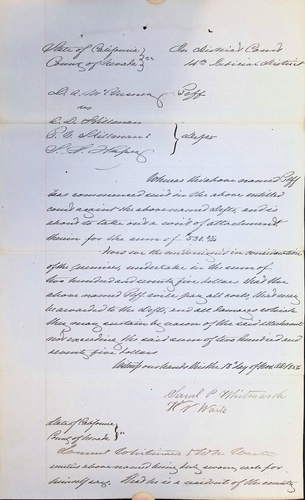 State of California } ss
County of Nevada
In District Court
14th Judicial District
Plff
vs
} Defts
Whereas the above named Plff
has commenced suit in the above entitled
court against the above named defts, and is
about to take out a writ of attachment
therein for the sum of $530.
Now we the undersigned in consideration
of the premises, undertake in the sum of
two hundred and seventy five dollars that the
above named Plff will pay all costs, that may
be awarded to the defts, and all damages which
they may sustain by reason of the said attachment
not exceeding the said sum of two hundred and
seventy five dollars
Witness our hands this the 18th day of Nov. AD 1856
Saml P Whitmarsh
State of California } ss
County of Nevada
Samuel Whitmarsh &
being duly sworn, each for
himself says that he is a resident of the county